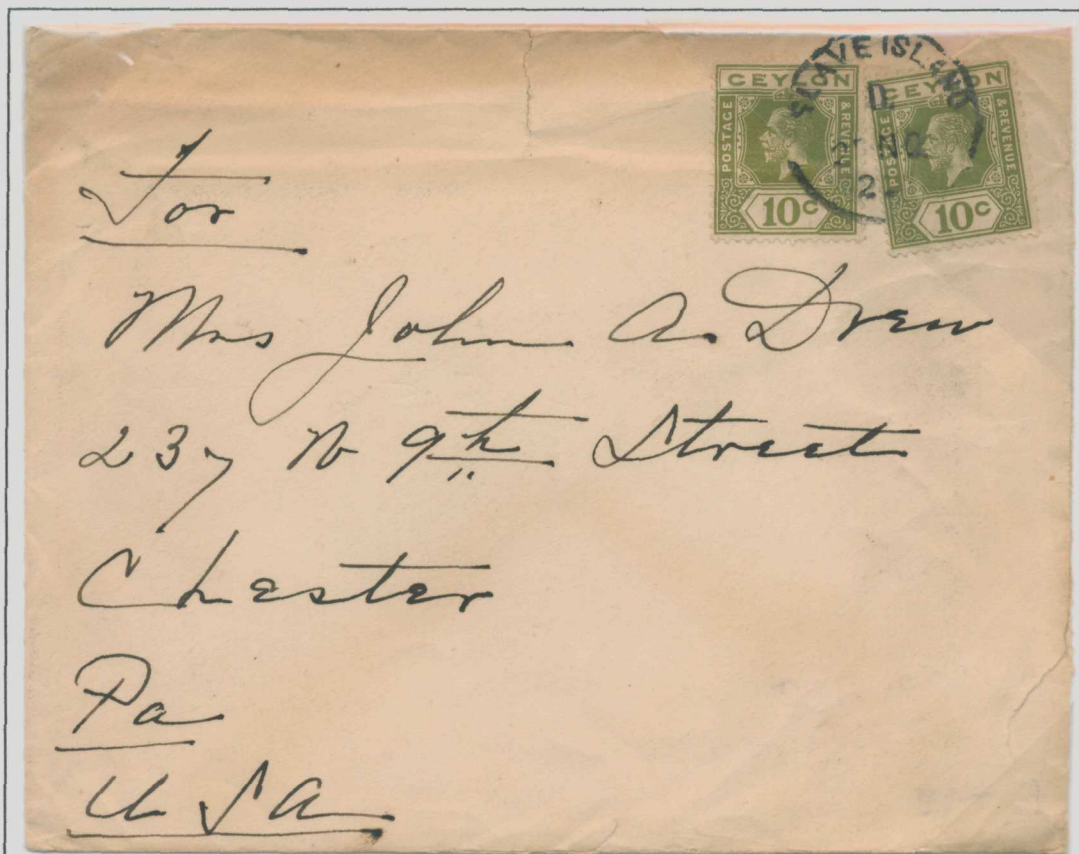 SLAVE ISLAND
D
2
CEYLON
POSTAGE & REVENUE
10c
CEYLON
POSTAGE & REVENUE
10c
For
Mrs John A. Drew
237 N 9th Street
Chester
Pa
U S A